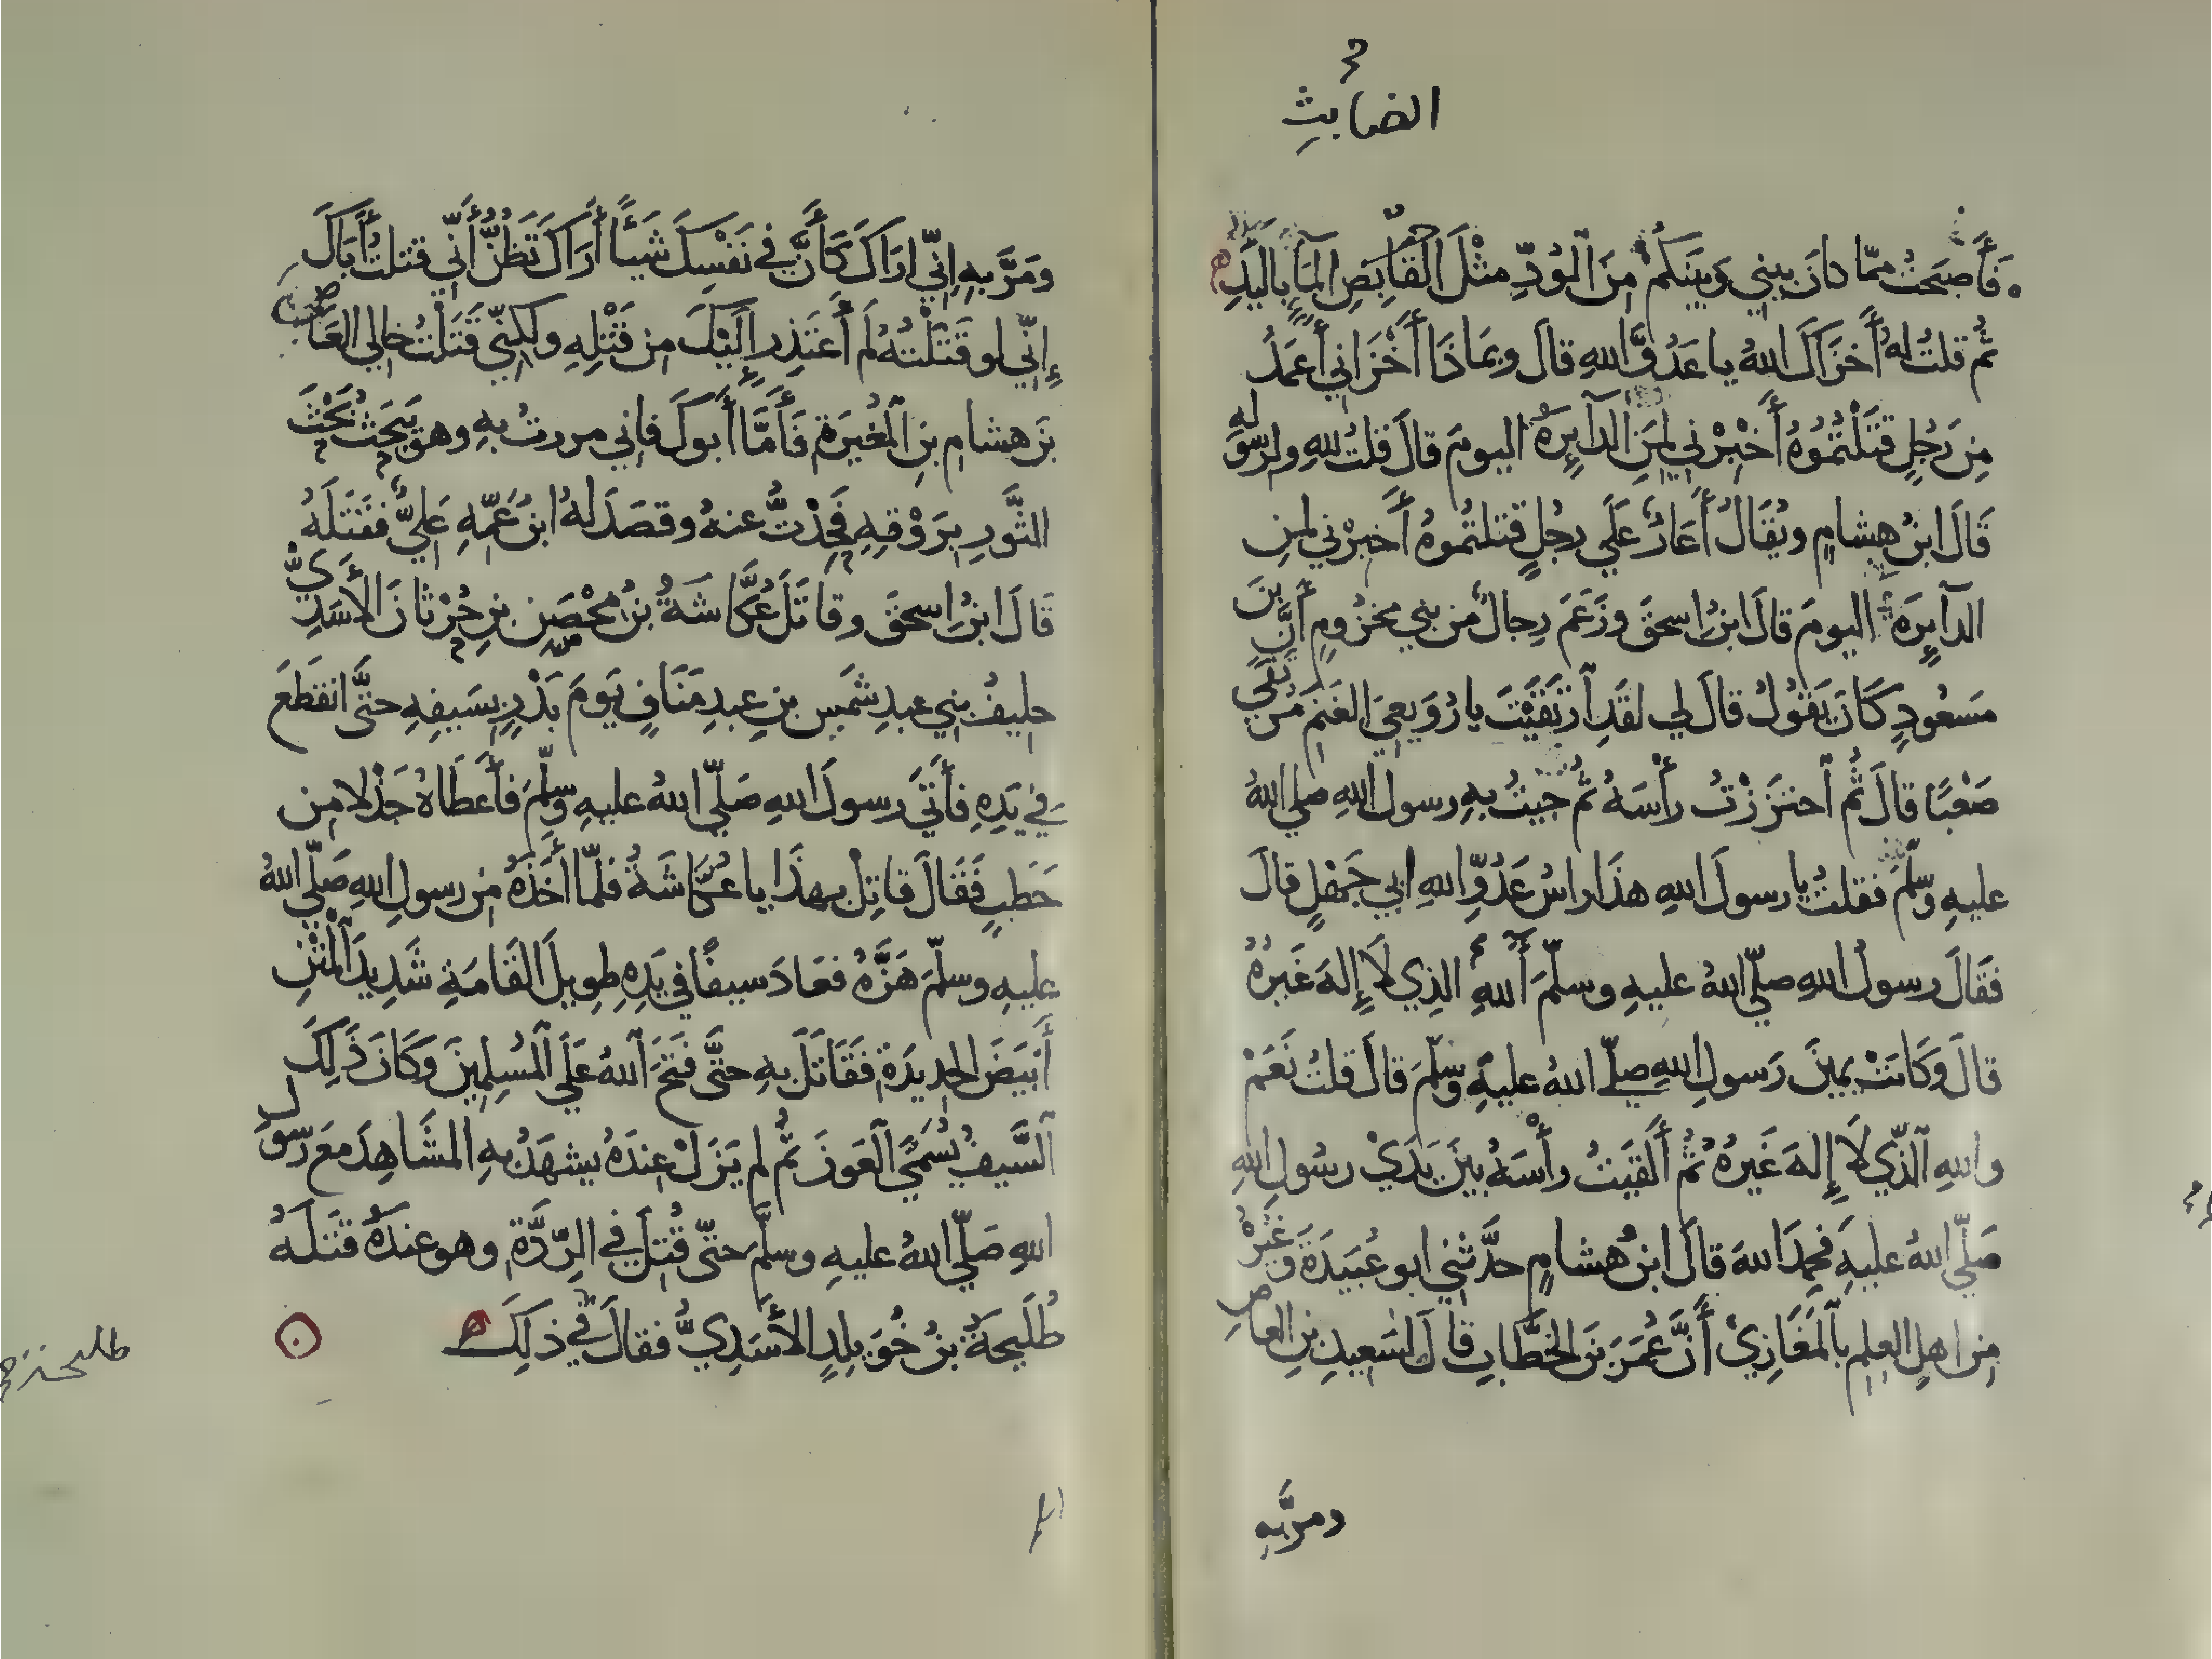 الضابث
فَأَصبَحتُ ممّا كانَ بيني وَبينَكُم مِنَ الوُدِّ مثْلَ القَابِضِ المَآءَ بِاليَدِ
ثُم قلتُ لهُ أَخزَاكَ اللهُ يا عَدُوَّ اللهِ قالَ وبمَاذَا أَخْزَاني أَعمَدُ
مِن رَجُلٍ قَتَلْتُمُوُهُ أَخْبِرْني لِمَنِ الدآيِرَةُ اليومَ قالَ قلتُ للهِ ولرسُولهِ
قَالَ ابنُ هِشامٍ ويُقَالُ أَعَارٌ عَلَي رجُلٍ قتلتُموهُ أَخبِرْني لمنِ
الدآيِرَةُ اليومَ قالَ ابنُ اسحقَ وزَعَمَ رِجالٌ من بني مخزُومٍ أَنَّ بنَ
مَسعُودٍ كَانَ يَقوُلُ قالَ لي لقَدِ ٱرتَقَيْتَ يا رُوَيعِيَ الغَنَمِ مُرتَقًي
صَعْبًا قالَ ثُم ٱحتزَزْتُ رأْسَهُ ثُم جيتُ بهِ رسولَ اللهِ صلي اللهُ
عليهِ وسلّمَ فقلتُ يا رسولَ اللهِ هذَا راسُ عَدُوِّ اللهِ ابي جَهْلٍ قالَ
فقَالَ رسولُ اللهِ صلّي اللهُ عليهِ وسلّمَ أٓللهِ الذِي لَا إِلهَ غَيرُهُ
قالَ وَكَانتْ يمينَ رَسولِ اللهِ صلّي اللهُ عليهِ وسلّمَ قالَ قلتُ نَعَمْ
واللهِ ٱلذّي لَا إِلهَ غَيرُهُ ثُم أَلقَيتُ رأْسَهُ بينَ يَدَيْ رسُولِ اللهِ
صَلّي اللهُ عليهِ فحمِدَ اللهَ قالَ ابنُ هُشامٍ حدَّثني ابو عُبَيدَةَ وغَيْرُهُ
مِن اهلِ العِلمِ بٱلمَغَازِيْ أَنَّ عُمَرَ بنَ الخطَّابِ قالَ لسَعِيدِ بنِ العاصِ
ومرَّ بهِ
ومَرَّ بهِ إِنّي ارَاكَ كَأَنَّ في نَفْسِكَ شَيئًا أَرَاكَ تَظُنُّ أَنّي قتلتُ أَبَاكَ
إِنّي لو قَتَلْتُهُ لَم أَعتَذِر إِلَيْكَ مِن قَتْلِهِ ولكِنّي قَتَلْتُ خالي العَاصِ
بنَ هشامِ بنِ المُغيرَةِ فَأَمَّا أَبوكَ فاني مررتُ بهِ وهو يَبحَثُ بَحْثَ
الثَّورِ بِرَوْقِهِ فَحِدْتُّ عنهُ وقصَدَ لهُ ابنُ عَمِّهِ عَليٌّ فقَتَلَهُ
قالَ ابنُ اسحقَ وقاتَلَ عُكَّاشَةُ بنُ مِحْصَنِ بنِ حُرْثانَ الأَسَدِيُّ
حليفُ بني عبدِ شَمسِ بنِ عبدِ مَنَافٍ يَومَ بَدْرٍ بسَيفِهِ حتَّى انقَطعَ
في يَدِهِ فأَتَي رسولَ اللهِ صَلّي اللهُ عليهِ وسلّمَ فأَعطَاهُ جَذْلا من
حَطبٍ فَقَالَ قاتِلْ بهذا يا عُكَّاشَةُ فلمّا أَخَذَهُ من رسولِ اللهِ صَلّي اللهُ
عليهِ وسلّمَ هَزَّهُ فعَادَ سيفًا في يَدِهِ طويلَ القَامَةِ شَدِيدَ ٱلْمَتْنِ
أَبيَضَ الحديدَةِ فَقَاتَلَ بهِ حتَّى فَتَحَ ٱللهُ عَلَي ٱلمُسلمِينَ وَكَانَ ذَلِكَ
ٱلسَّيفُ يُسَمَّي ٱلعَونَ ثُم لم يَزَلْ عِندَهُ يشهَدُ بهِ المشَاهِدَ معَ رَسولِ
اللهِ صَلّي اللهُ عليهِ وسلّمَ حتّى قُتِلَ في الرِّدَّةِ وهو عندَهُ قتَلَهُ
طُلَيحَةُ بنُ خُوَيلدٍ الأَسَدِيُّ فقالَ في ذلِكَ